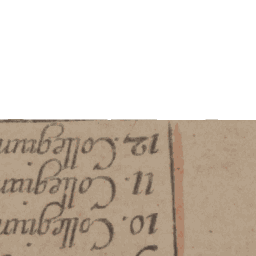 10. Collegium
11. Collegium
12. Collegium